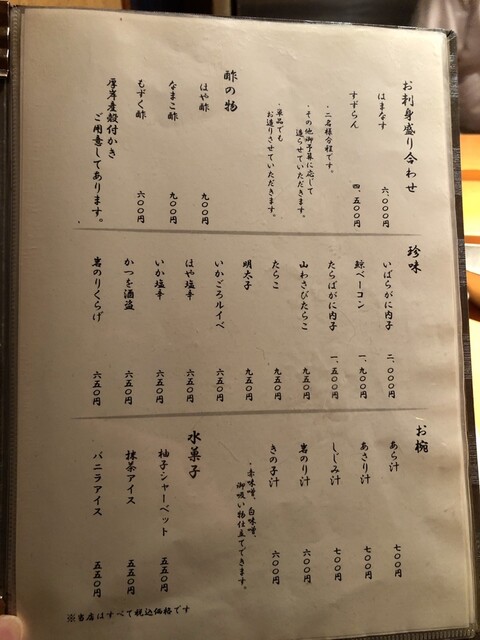 お刺身盛り合わせ
はまなす 六、〇〇〇円
すずらん 四、五〇〇円
・二名様分程です。
・その他御予算に応じて
造らせていただきます。
・単品でも
お造りさせていただきます。
酢の物
はや酢 九〇〇円
なまこ酢 九〇〇円
もずく酢 六〇〇円
厚岸産殻付かき
ご用意してあります。
珍味
いばらがに内子 二、〇〇〇円
鯨ベーコン 一、九〇〇円
たらばがに内子 一、五〇〇円
山わさびたらこ 九五〇円
たらこ 九五〇円
明太子 九五〇円
いかごろルイベ 六五〇円
はや塩辛 六五〇円
いか塩辛 六五〇円
かつを酒盗 六五〇円
岩のりくらげ 六五〇円
お椀
あら汁 七〇〇円
あさり汁 七〇〇円
しじみ汁 七〇〇円
岩のり汁 六〇〇円
きの子汁 六〇〇円
・赤味噌、白味噌、
御吸い物仕立てできます。
水菓子
柚子シャーベット 五五〇円
抹茶アイス 五五〇円
バニラアイス 五五〇円
※当店はすべて税込価格です